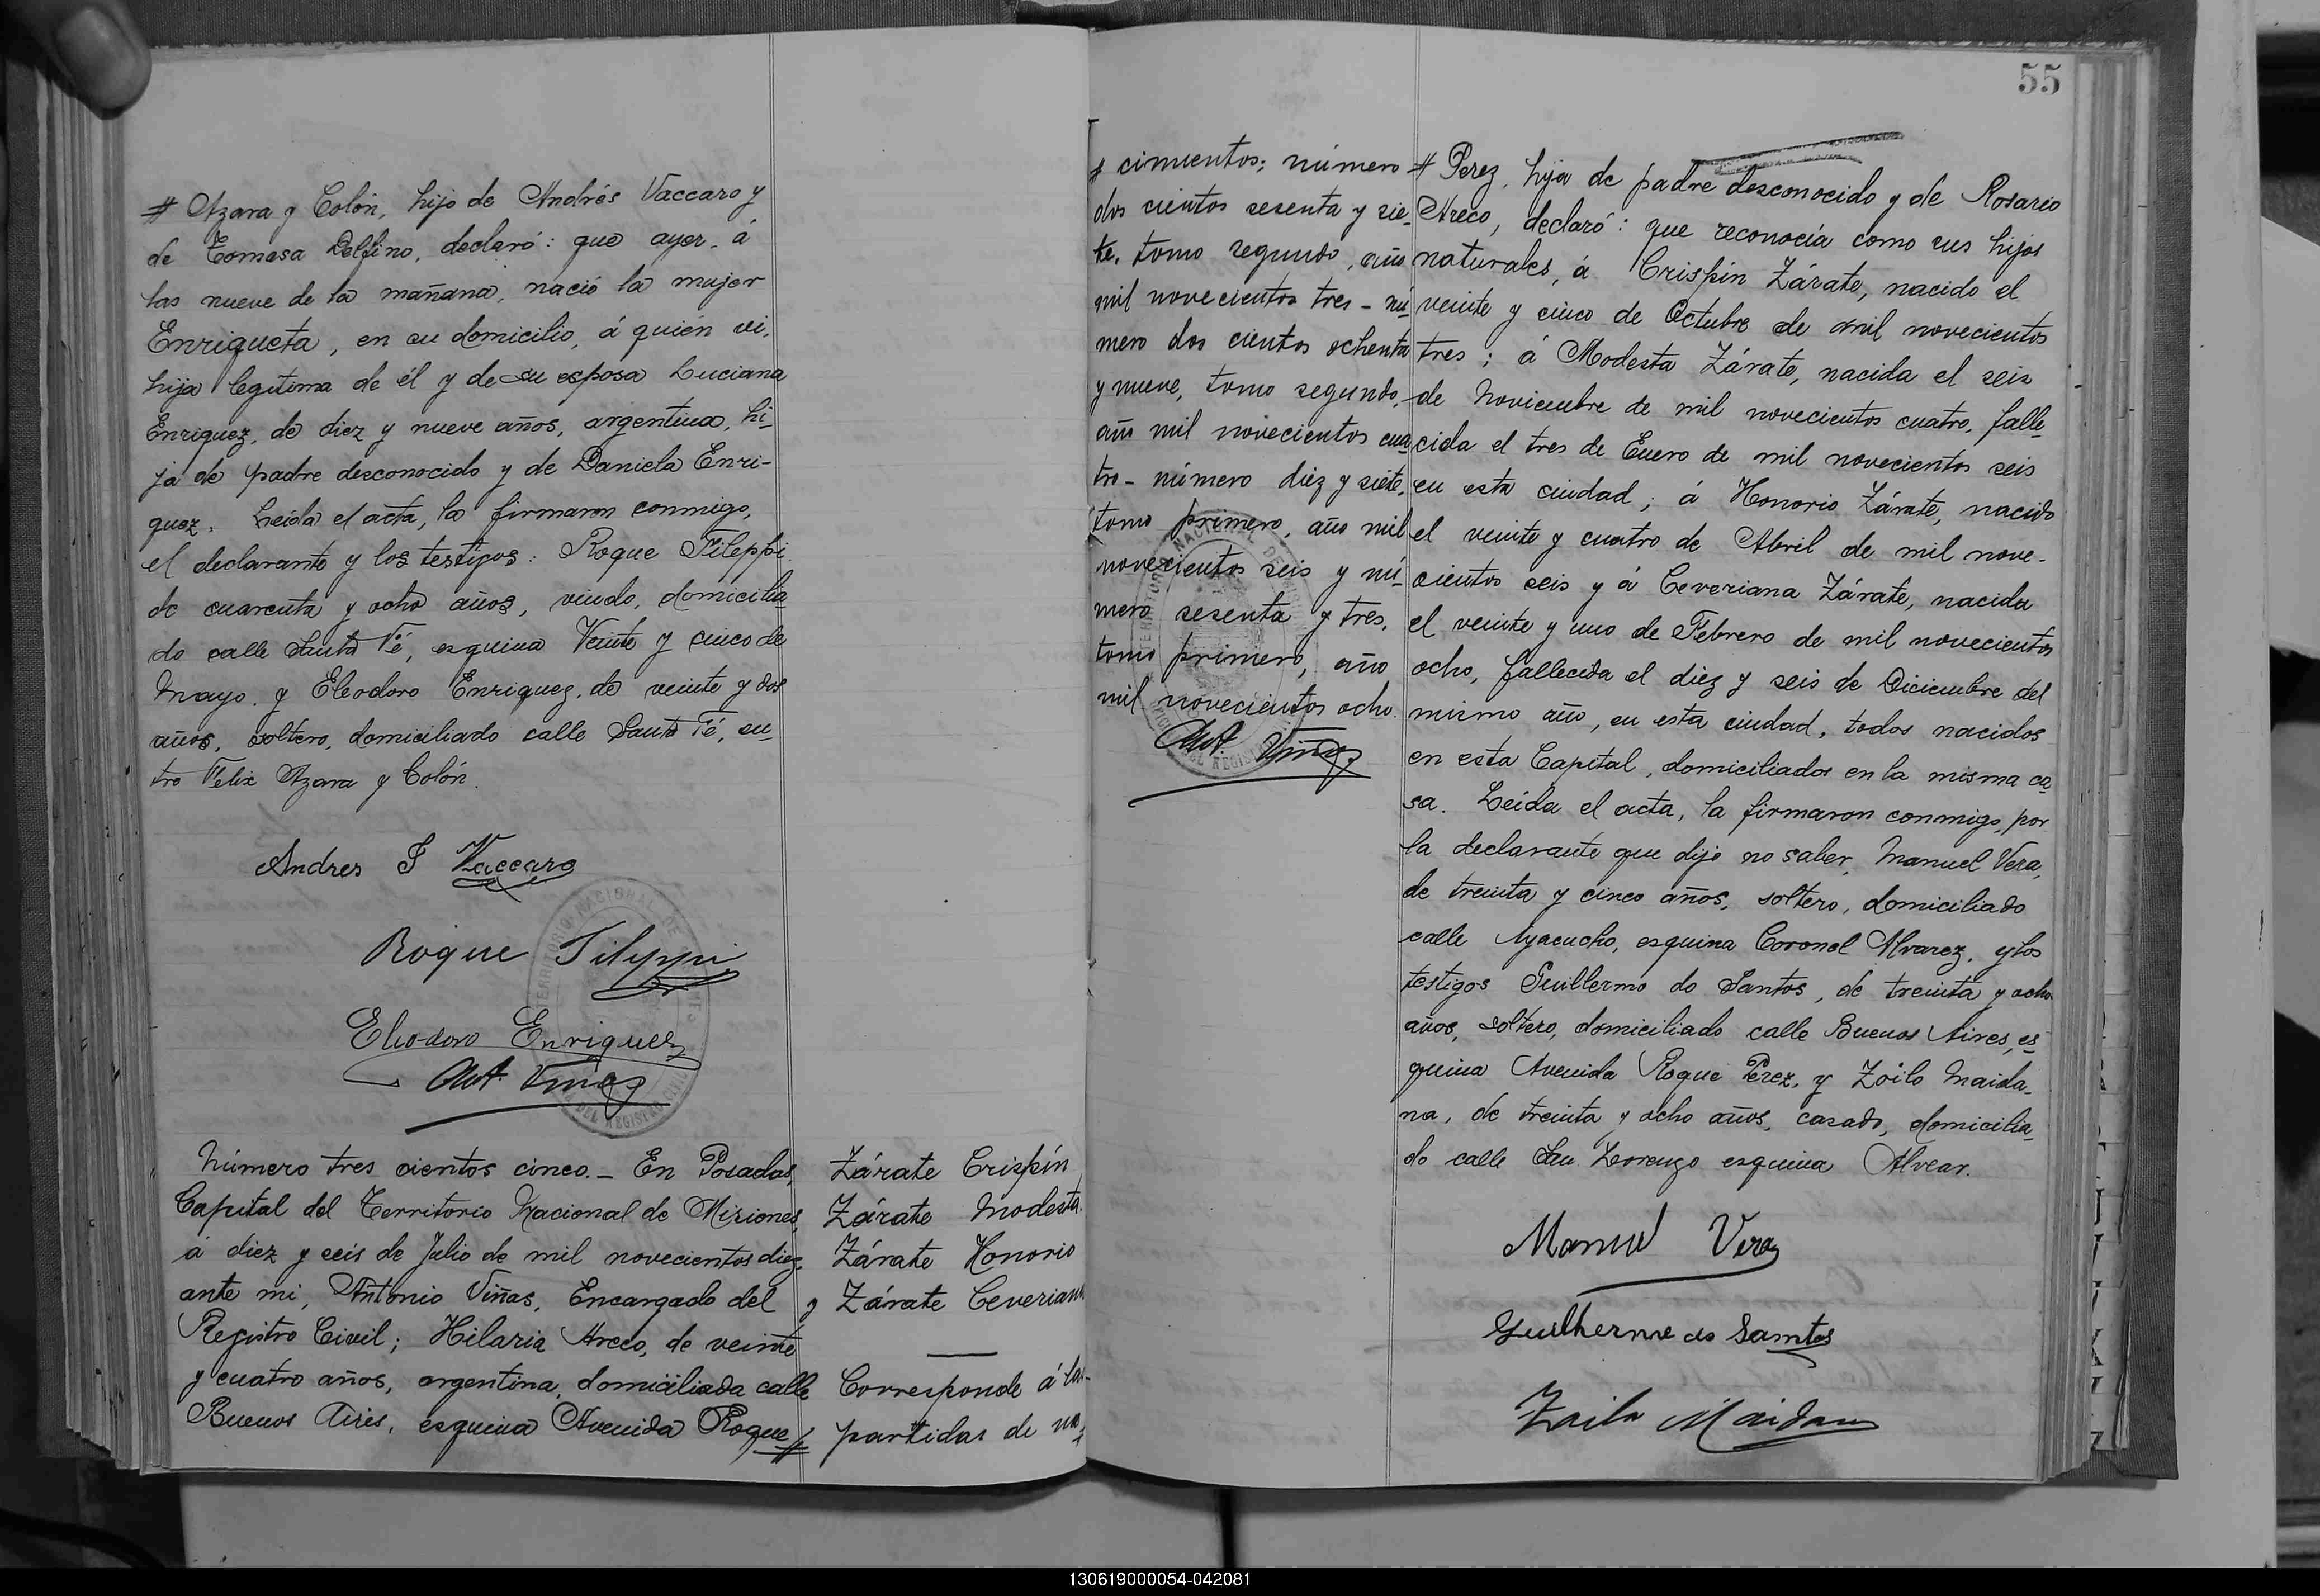 # Azara y Colón, hijo de Andrés Vaccaro y
de Tomasa Delfino, declaró: que ayer, á
las nueve de la mañana, nació la mujer
Enriqueta, en su domicilio, á quién vi,
hija legítima de él y de su esposa Luciana
Enriquez, de diez y nueve años, argentina, hi-
ja de padre desconocido y de Daniela Enri-
quez. Leída el acta, la firmaron conmigo,
el declarante y los testigos: Roque Fileppi
de cuarenta y ocho años, viudo, domicilia-
do calle Santa Fé, esquina Veinte y cinco de
Mayo. y Eleodoro Enriquez, de veinte y dos
años, soltero, domiciliado calle Santa Fé, en-
tre Félix Azara y Colón.
Andres F Vaccaro
Roque Filippi
Eliodoro Enriquez
Ant. Viñas
Número tres cientos cinco.- En Posadas,
Capital del Territorio Nacional de Misiones,
á diez y seis de Julio de mil novecientos diez,
ante mi, Antonio Viñas, Encargado del
Registro Civil; Hilaria Areco, de veinte
y cuatro años, argentina, domiciliada calle
Buenos Aires, esquina Avenida Roque #
Zárate Crispín
Zárate Modesta
Zárate Honorio
y Zárate Ceveriana
Corresponde á las
partidas de na-
55
# cimientos; número
dos cientos sesenta y sie-
te, tomo segundo, año
mil novecientos tres - nú-
mero dos cientos ochenta
y nueve, tomo segundo,
año mil novecientos cua-
tro - número diez y siete,
tomo primero, año mil
novecientos seis y nú-
mero sesenta y tres,
tomo primero, año
mil novecientos ocho.
Ant. Viñas
# Perez, hija de padre desconocido y de Rosario
Areco, declaró: que reconocía como sus hijos
naturales, á Crispín Zárate, nacido el
veinte y cinco de Octubre de mil novecientos
tres; á Modesta Zárate, nacida el seis
de Noviembre de mil novecientos cuatro, falle-
cida el tres de Enero de mil novecientos seis
en esta ciudad; á Honorio Zárate, nacido
el veinte y cuatro de Abril de mil nove-
cientos seis y á Ceveriana Zárate, nacida
el veinte y uno de Febrero de mil novecientos
ocho, fallecida el diez y seis de Diciembre del
mismo año, en esta ciudad, todos nacidos
en esta Capital, domiciliados en la misma ca-
sa. Leída el acta, la firmaron conmigo, por
la declarante que dijo no saber, Manuel Vera,
de treinta y cinco años, soltero, domiciliado
calle Ayacucho, esquina Coronel Alvarez, y los
testigos Guillermo do Santos, de treinta y ocho
años, soltero, domiciliado calle Buenos Aires, es-
quina Avenida Roque Perez, y Zoilo Maida-
na, de treinta y ocho años, casado, domicilia-
do calle San Lorenzo esquina Alvear.
Manuel Vera
Guilherme do Santos
Zoilo Maidana
130619000054-042081